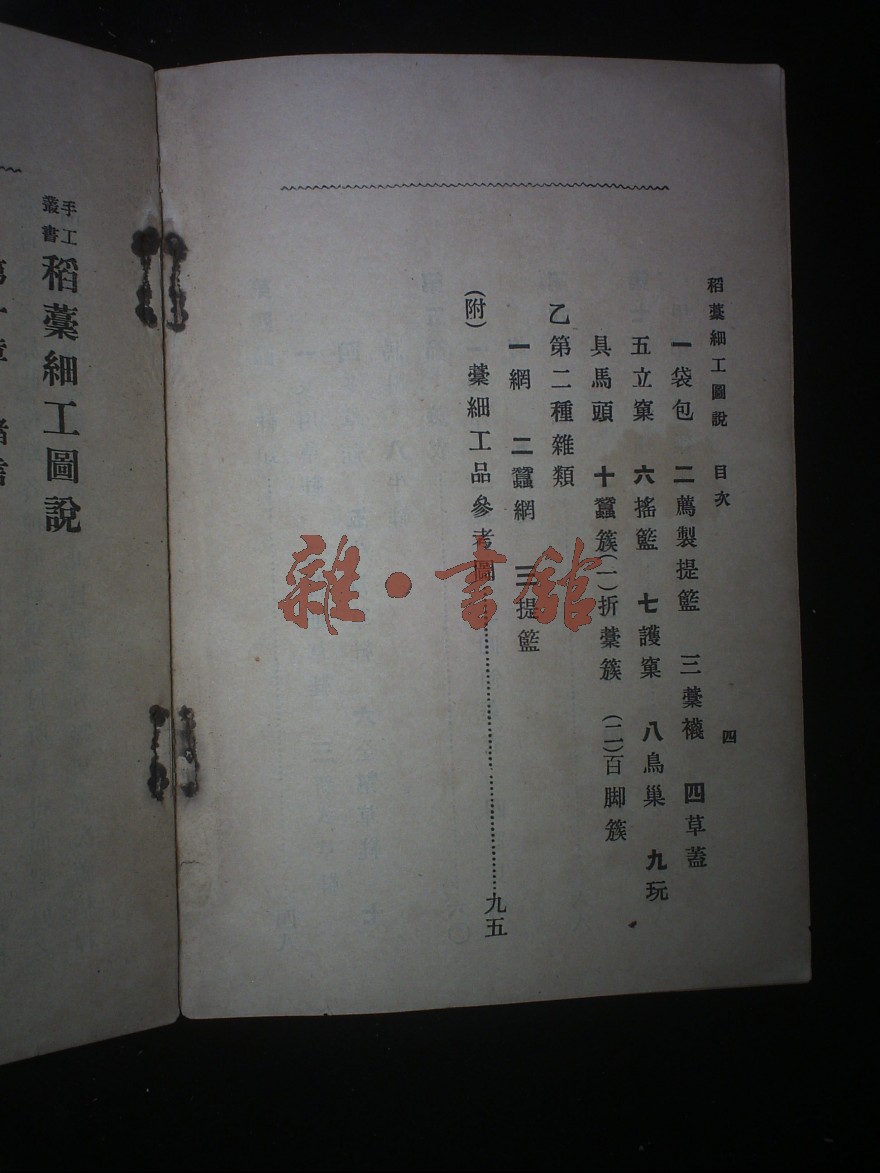 稻藁細工圖說　目次　四
一袋包　二薦製提籃　三藁襪　四草蓋
五立窠　六搖籃　七護窠　八鳥巢　九玩
具馬頭　十蠶簇(一)折藁簇　(二)百脚簇
乙第二種雜類
一網　二蠶網　三提籃
(附)藁細工品參考圖……九五
手工叢書
稻藁細工圖說
雜·書館